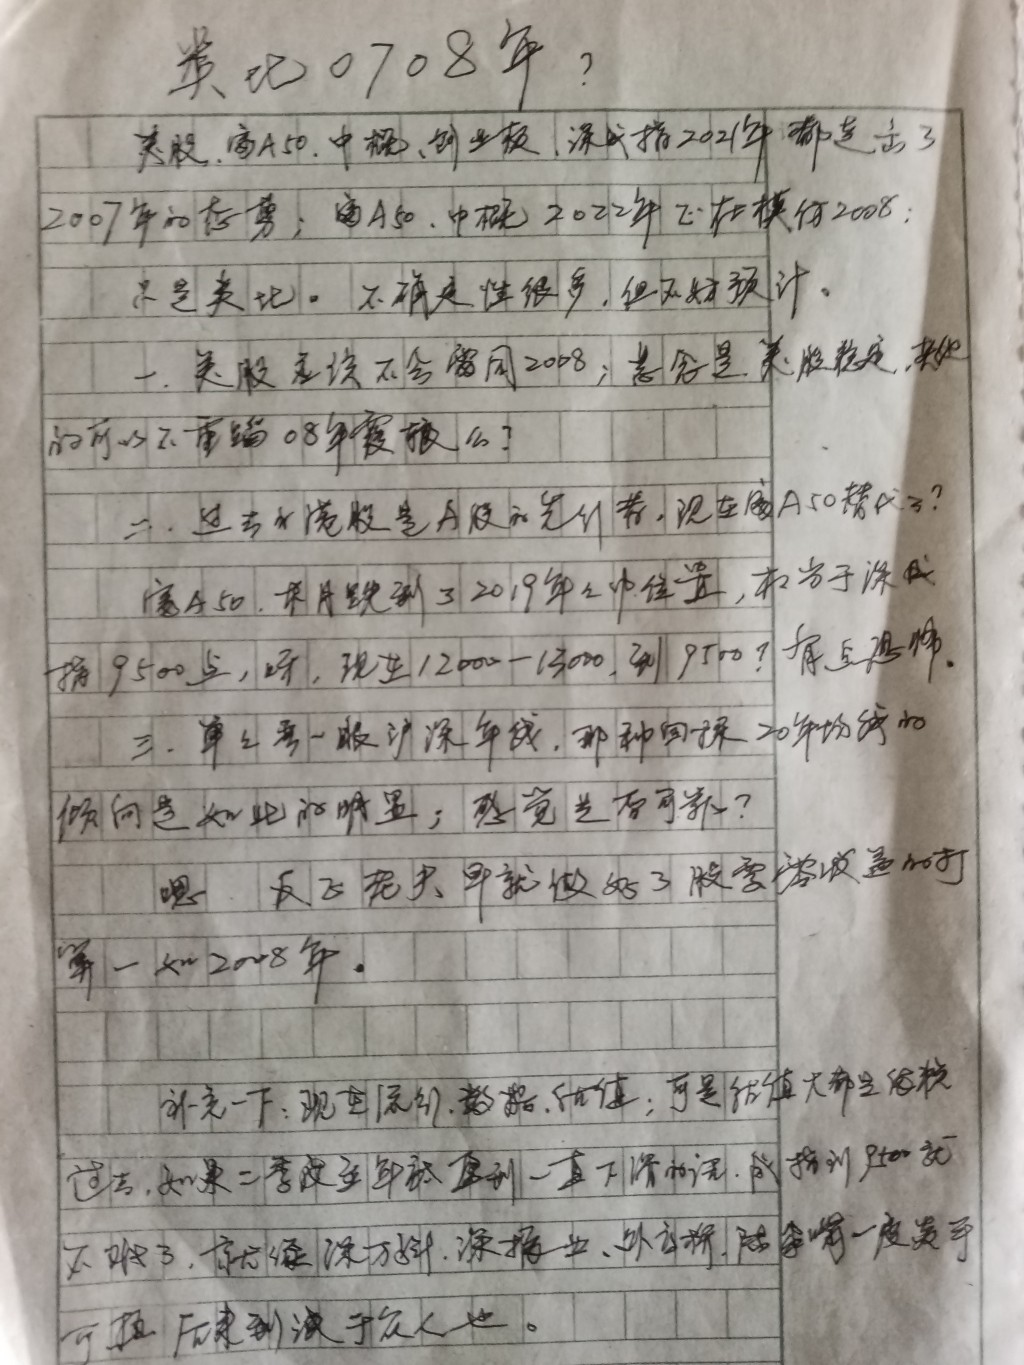 类比0708年？
美股、富A50、中概、创业板、深成指2021年都走出了
2007年的态势；富A50、中概2022年正在模仿2008；
只是类比。不确定性很多，但不好预计。
一、美股应该不会雷同2008；悬念是美股稳定，其他
的可以不重蹈08年覆辙么？
二、过去港股是A股的先行者，现在富A50替代了？
富A50，本月跌到了2019年之中位置，相当于深成
指9500点，呀，现在12000-13000，到9500？有点恐怖。
三、单之看一眼沪深年线，那种回探20年均线的
倾向是如此的明显；感觉是否可靠？
嗯 反正老夫早就做好了股票深度套的打
算一如2008年。
补充一下：现在流行、数据、估值；可是估值大都是依赖
过去，如果二季度至年底再到一直下滑的话，成指到9500就
不难了，深方针、深振业、外高桥、陆家嘴一度贵乎
后来到泯于众人也。